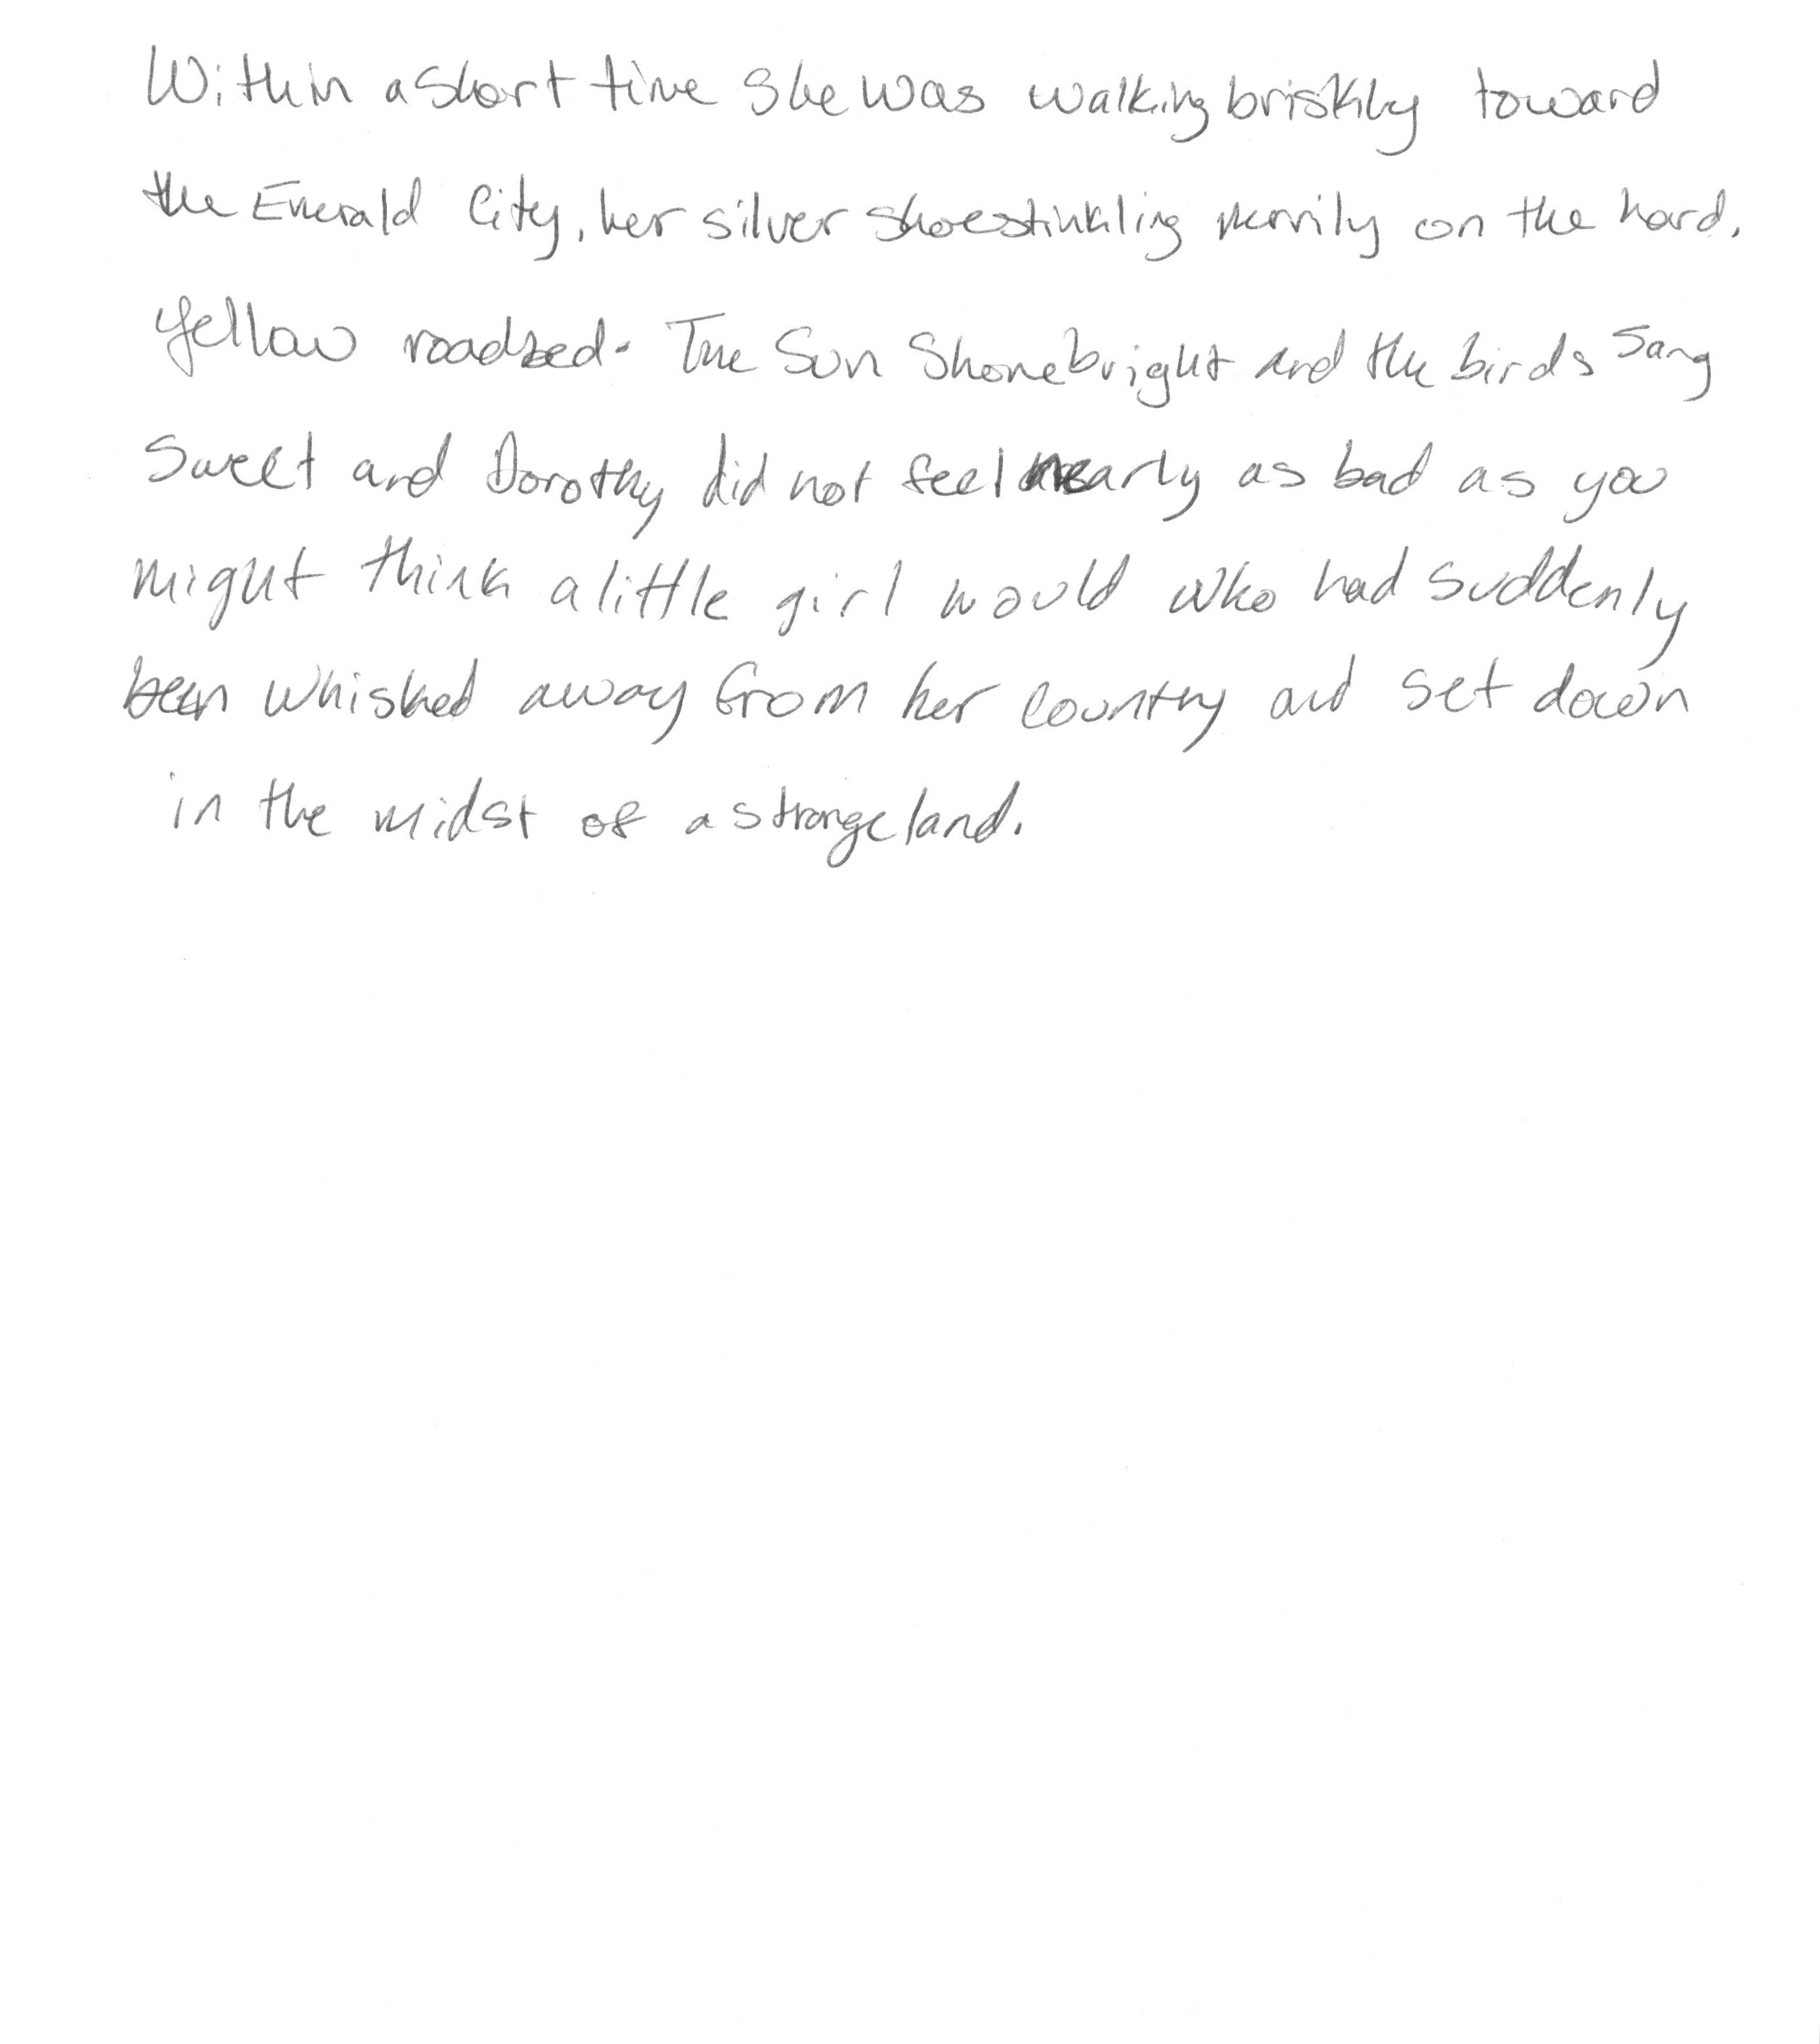 Within a short time she was walking briskily toward
the Emerald City, her silver shoes tinkling merrily on the hard,
yellow roadbed. The Sun Shone bright and the birds Sang
Sweet and Dorothy did not feel nearly as bad as you
might think a little girl would who had suddenly
been whisked away from her country and set down
in the midst of a strange land.